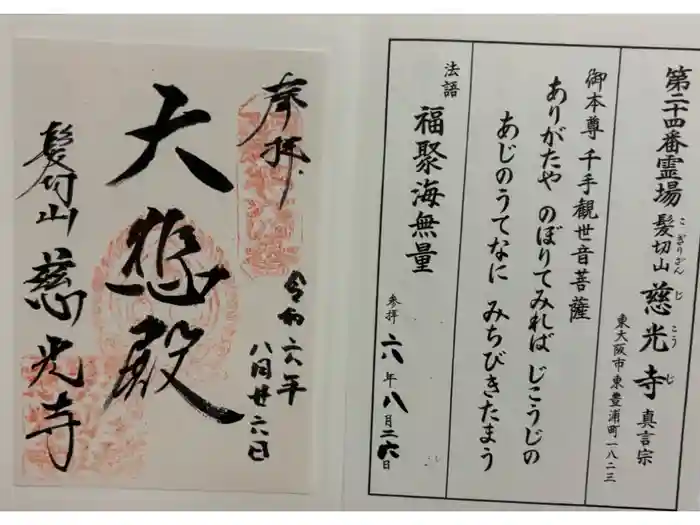 第二十四番霊場 髪切山 慈光寺 真言宗
こぎりざん じこうじ
東大阪市東豊浦町一八二三
御本尊 千手観世音菩薩
ありがたや のぼりてみれば じこうじの
あじのうてなに みちびきたまう
法語
福聚海無量
参拝 六年八月二六日
奉拝
令和六年
八月廿六日
大悲殿
髪切山 慈光寺